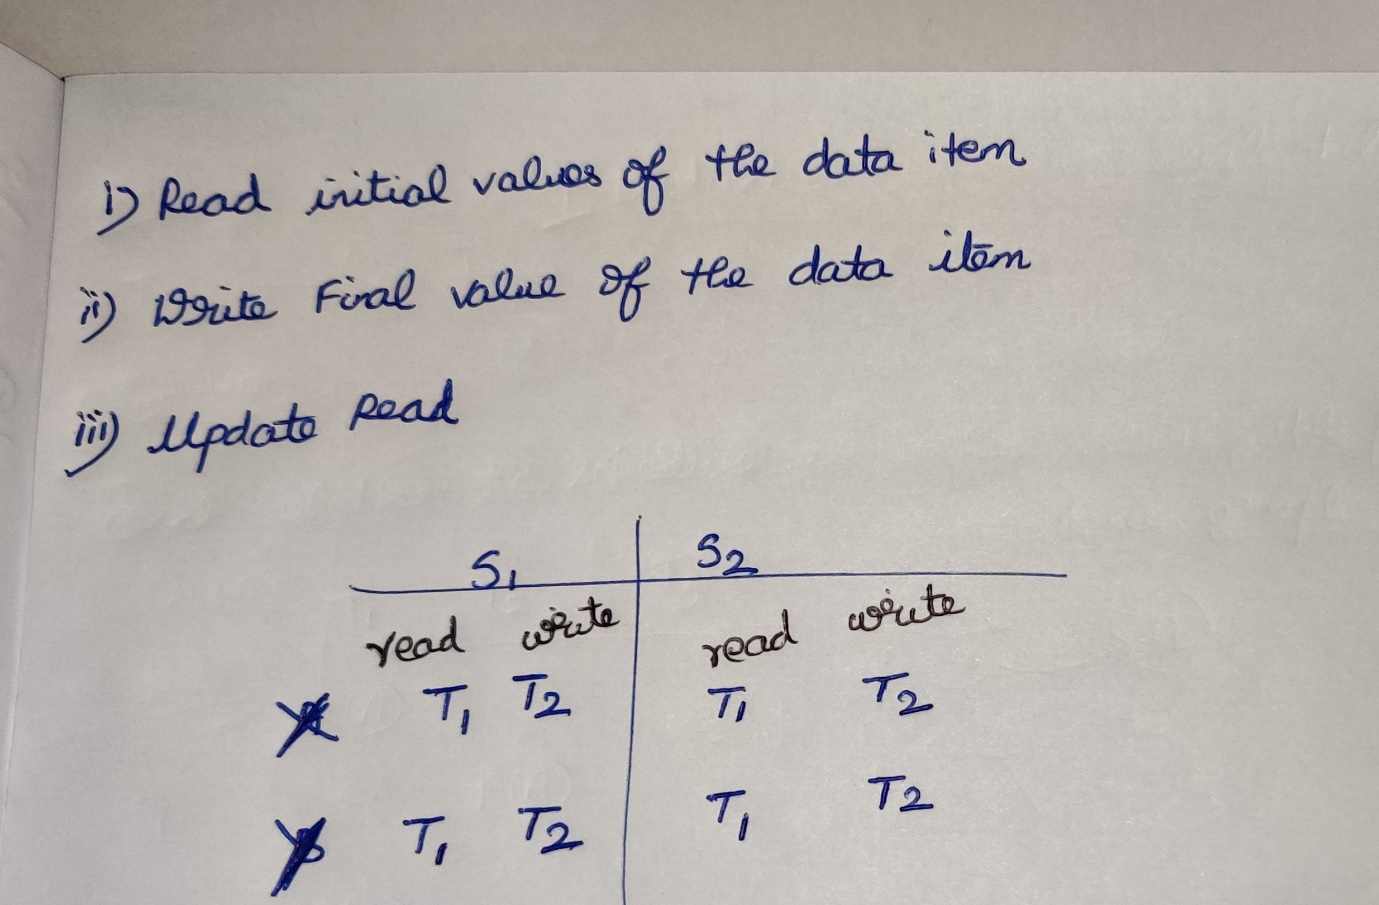 i) Read initial values of the data item
ii) Write Final value of the data item
iii) Update Read
S1 S2
read write read write
T1 T2 T1 T2
T1 T2 T1 T2